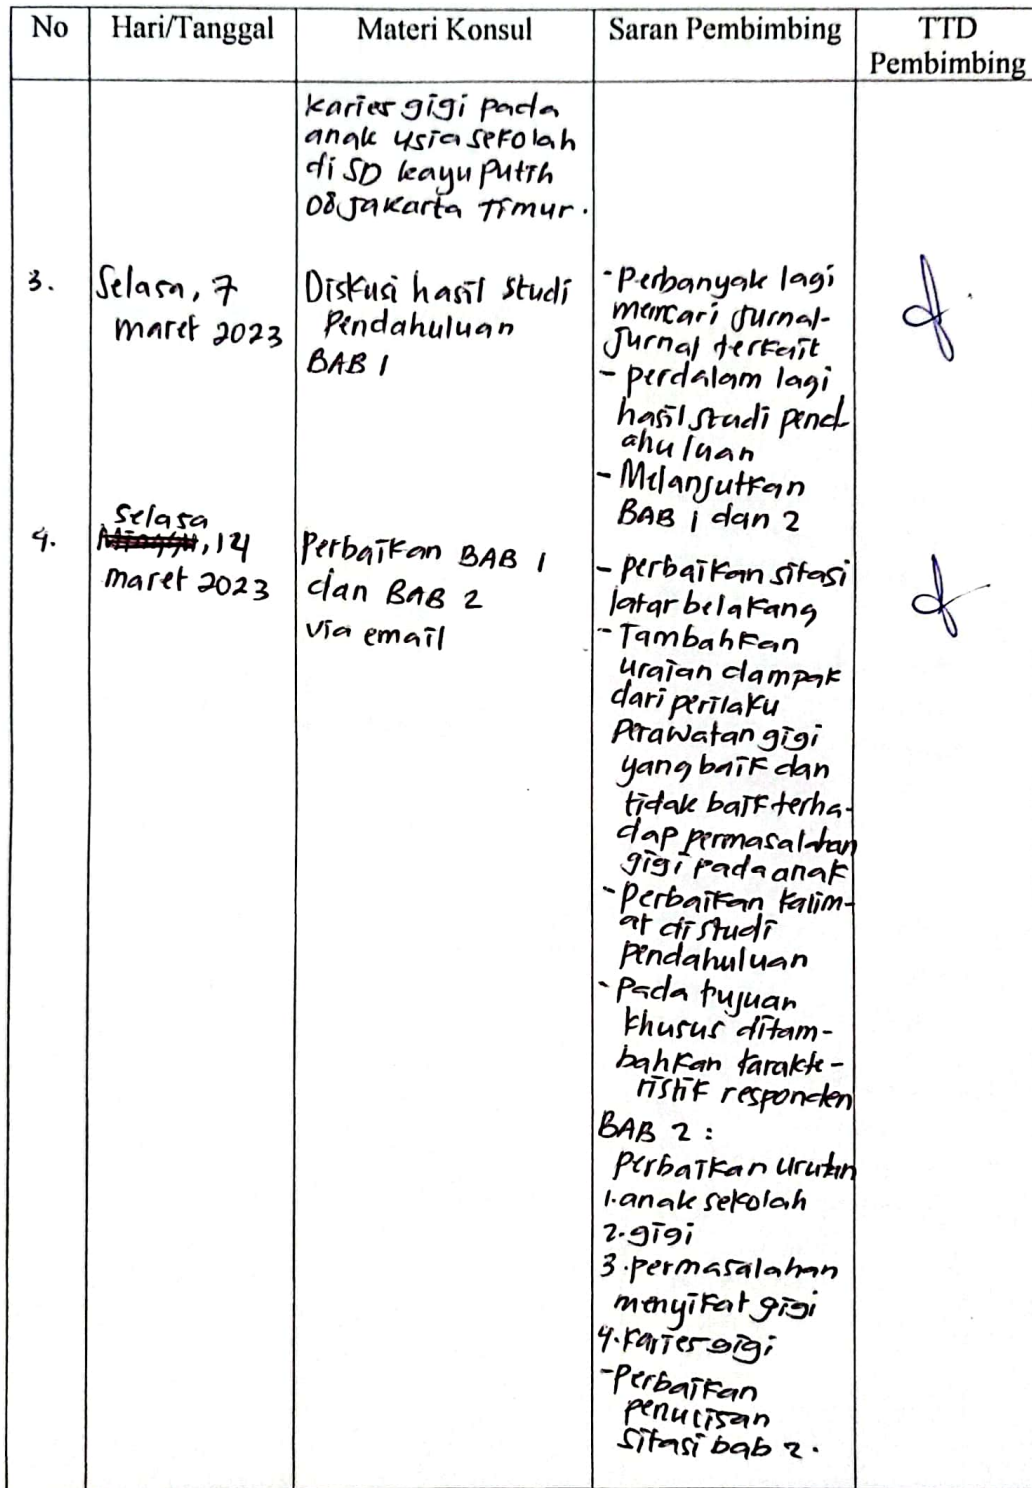 No
Hari/Tanggal
Materi Konsul
Saran Pembimbing
TTD
Pembimbing
karies gigi pada
anak usia sekolah
di SD kayu Putih
08 Jakarta Timur.
3.
Selasa, 7
maret 2023
Diskusi hasil Studi
Pendahuluan
BAB 1
- Perbanyak lagi
mencari jurnal-
Jurnal terkait
- perdalam lagi
hasil studi pend
ahuluan
- Melanjutkan
BAB 1 dan 2
4.
selasa
Minggu, 14
maret 2023
Perbaikan BAB 1
dan BAB 2
via email
- perbaikan sitasi
latar belakang
- Tambahkan
uraian dampak
dari perilaku
Perawatan gigi
yang baik dan
tidak baik terha-
dap permasalahan
gigi pada anak
- Perbaikan kalim-
at di studi
pendahuluan
- Pada tujuan
khusus ditam-
bahkan karakte-
ristik responden
BAB 2 :
Perbaikan urutan
1. anak sekolah
2. gigi
3. permasalahan
menyikat gigi
4. karies gigi
- Perbaikan
penulisan
sitasi bab 2.